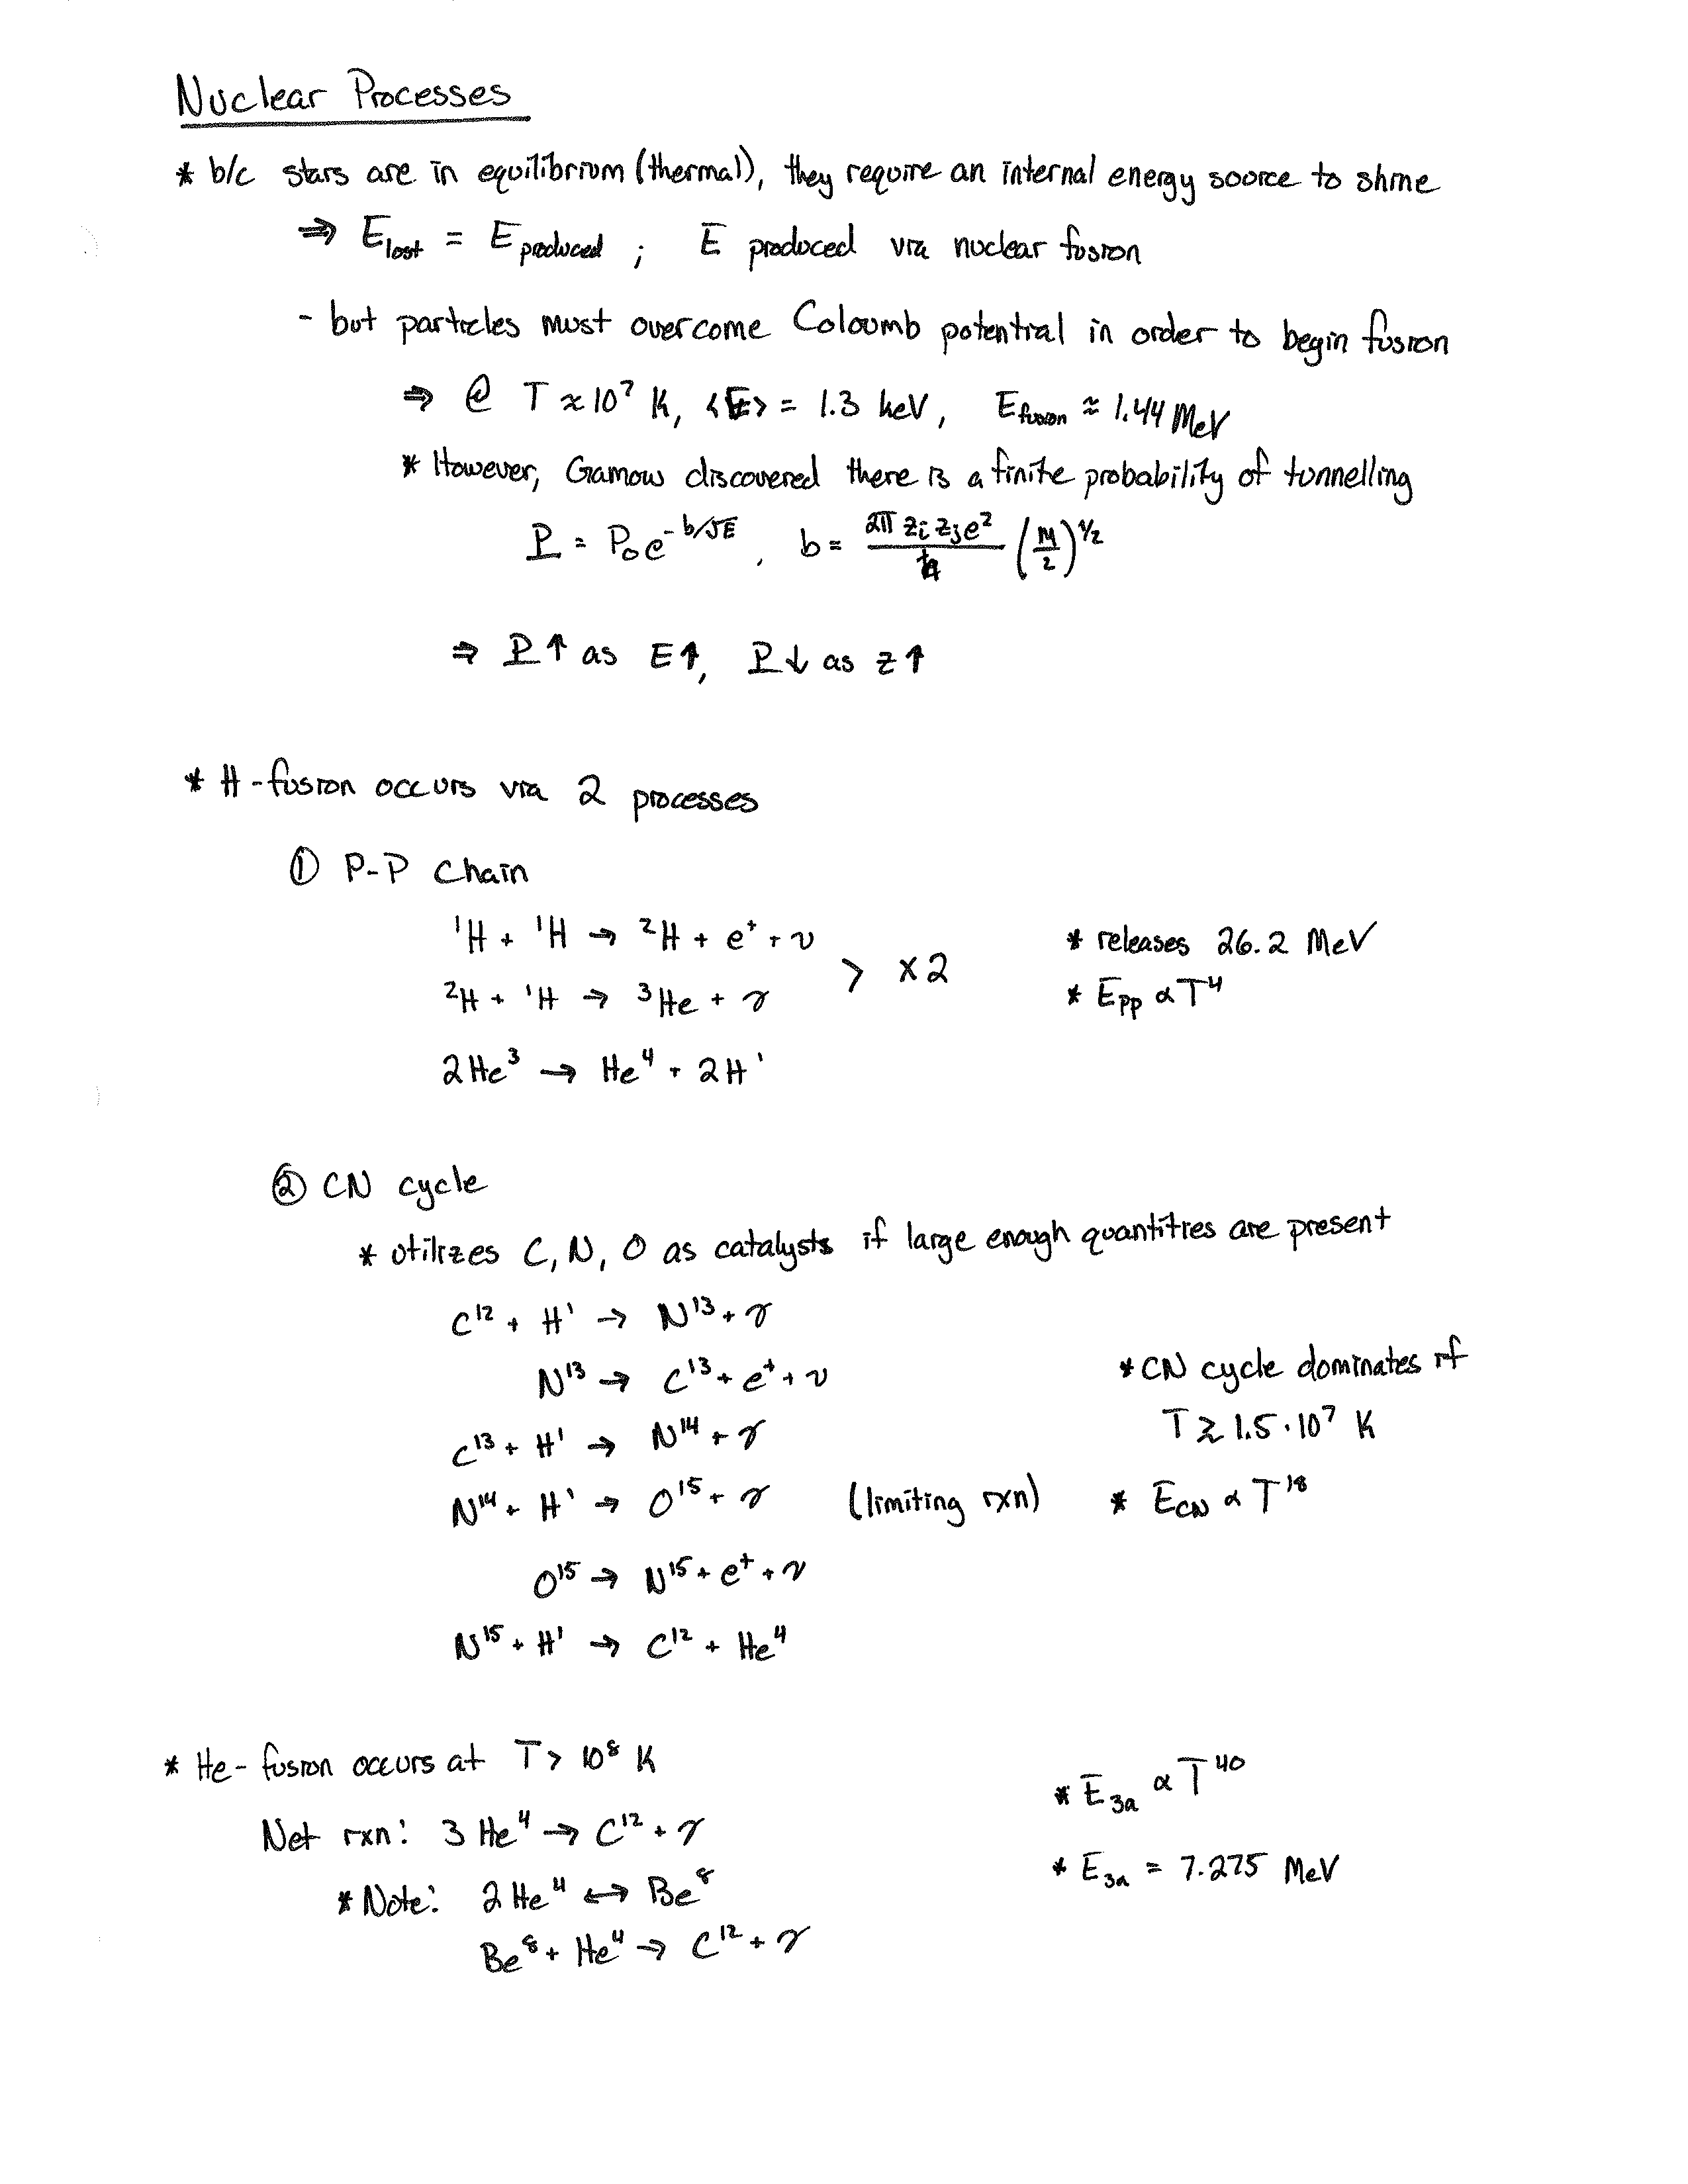 Nuclear Processes
* b/c stars are in equilibrium (thermal), they require an internal energy source to shine
⇒ E_lost = E_produced ; E produced via nuclear fusion
- but particles must overcome Coloumb potential in order to begin fusion
⇒ @ T ≈ 10⁷ K, <E> = 1.3 keV, E_fusion ≈ 1.44 MeV
* However, Gamow discovered there is a finite probability of tunnelling
P = P₀e^(-b/√E), b = (2π z_i z_j e²)/ħ (M/2)^(1/2)
⇒ P↑ as E↑, P↓ as z↑
* H-fusion occurs via 2 processes
① P-P Chain
¹H + ¹H → ²H + e⁺ + ν
²H + ¹H → ³He + γ > x2
* releases 26.2 MeV
* E_pp ∝ T⁴
2He³ → He⁴ + 2H¹
② CN cycle
* utilizes C, N, O as catalysts if large enough quantities are present
C¹² + H¹ → N¹³ + γ
N¹³ → C¹³ + e⁺ + ν
C¹³ + H¹ → N¹⁴ + γ
N¹⁴ + H¹ → O¹⁵ + γ (limiting rxn)
O¹⁵ → N¹⁵ + e⁺ + ν
N¹⁵ + H¹ → C¹² + He⁴
* CN cycle dominates if
T ≳ 1.5·10⁷ K
* E_CN ∝ T¹⁸
* He-fusion occurs at T > 10⁸ K
Net rxn: 3 He⁴ → C¹² + γ
* Note: 2 He⁴ ↔ Be⁸
Be⁸ + He⁴ → C¹² + γ
* E_3a ∝ T⁴⁰
* E_3a = 7.275 MeV